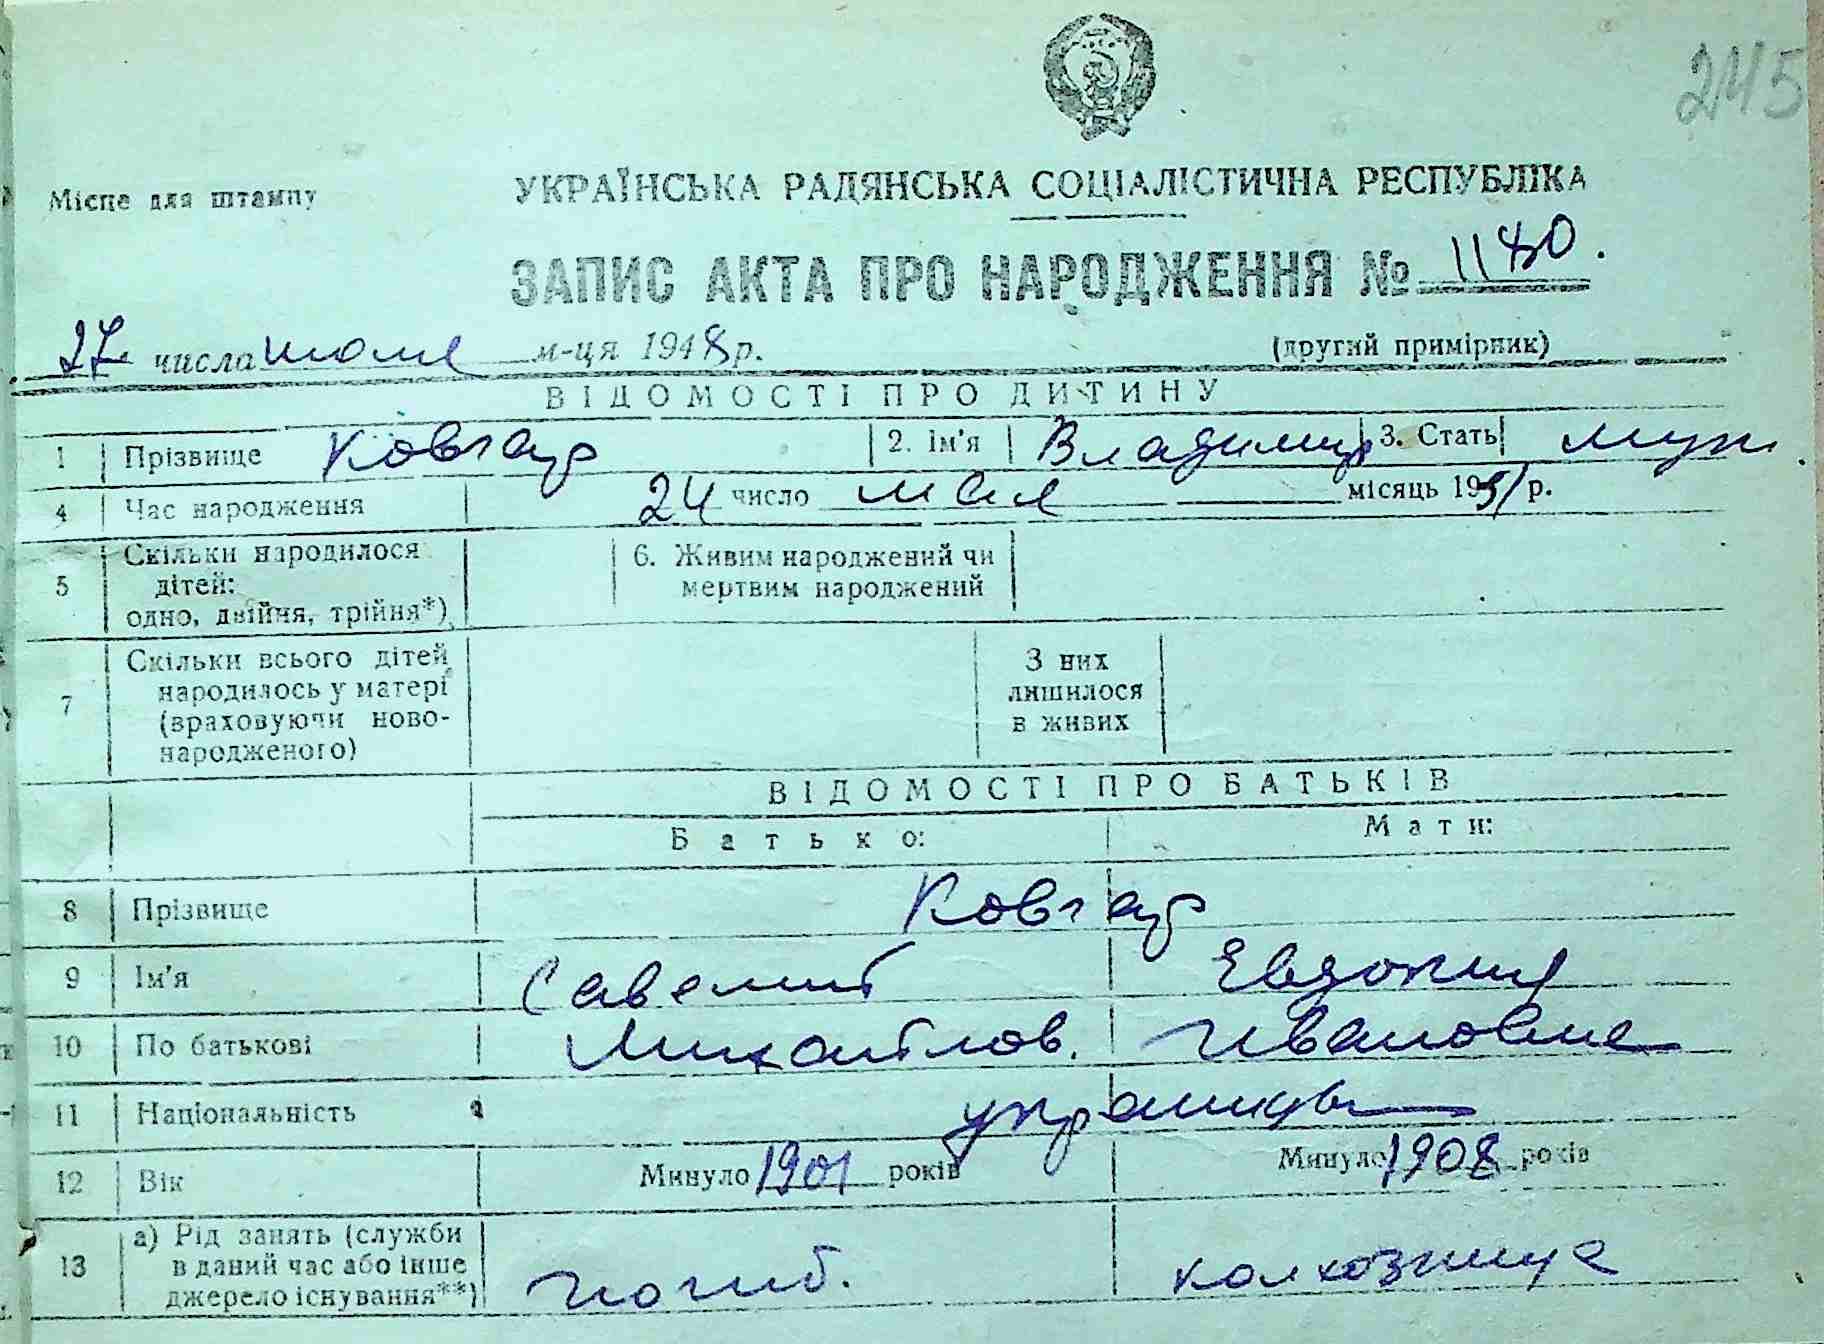 245
Місце для штампу
УКРАЇНСЬКА РАДЯНСЬКА СОЦІАЛІСТИЧНА РЕСПУБЛІКА
ЗАПИС АКТА ПРО НАРОДЖЕННЯ № 1180.
27 числа июля м-ця 1948 р. (другий примірник)
ВІДОМОСТІ ПРО ДИТИНУ
1 Прізвище Ковгар 2. ім'я Владимир 3. Стать муж.
4 Час народження 24 число мая місяць 19 р.
5 Скільки народилося дітей: одно, двійня, трійня*) 6. Живим народжений чи мертвим народжений
7 Скільки всього дітей народилось у матері (враховуючи новонародженого) З них лишилося в живих
ВІДОМОСТІ ПРО БАТЬКІВ
Батько: Мати:
8 Прізвище Ковгар
9 Ім'я Савелий Евдокия
10 По батькові Михайлов. Ивановна
11 Національність украинцы
12 Вік Минуло 1901 років Минуло 1908 років
13 а) Рід занять (служби в даний час або інше джерело існування**) погиб. колхозница